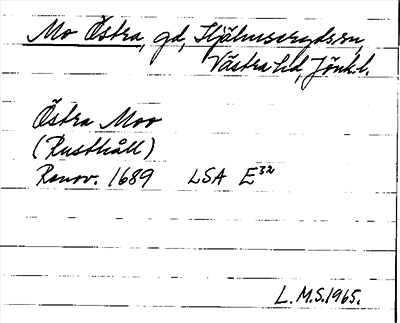 Mo Östra, gd, Hjälmseryds sn,
Västra hd, Jönk.l.
Östra Moo
(Rusthåll)
Renov. 1689 LSA E32
L.M.S. 1965.